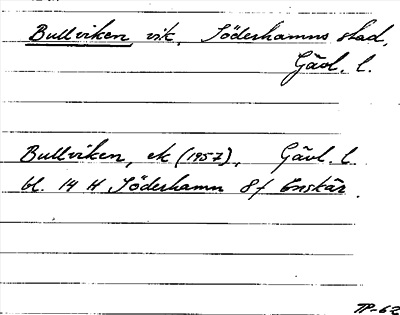 Bullviken, vik, Söderhamns stad,
Gävl. l.
Bullviken, ek (1957), Gävl. l.
bl. 14 H Söderhamn 8 f Enskär.
TP-62